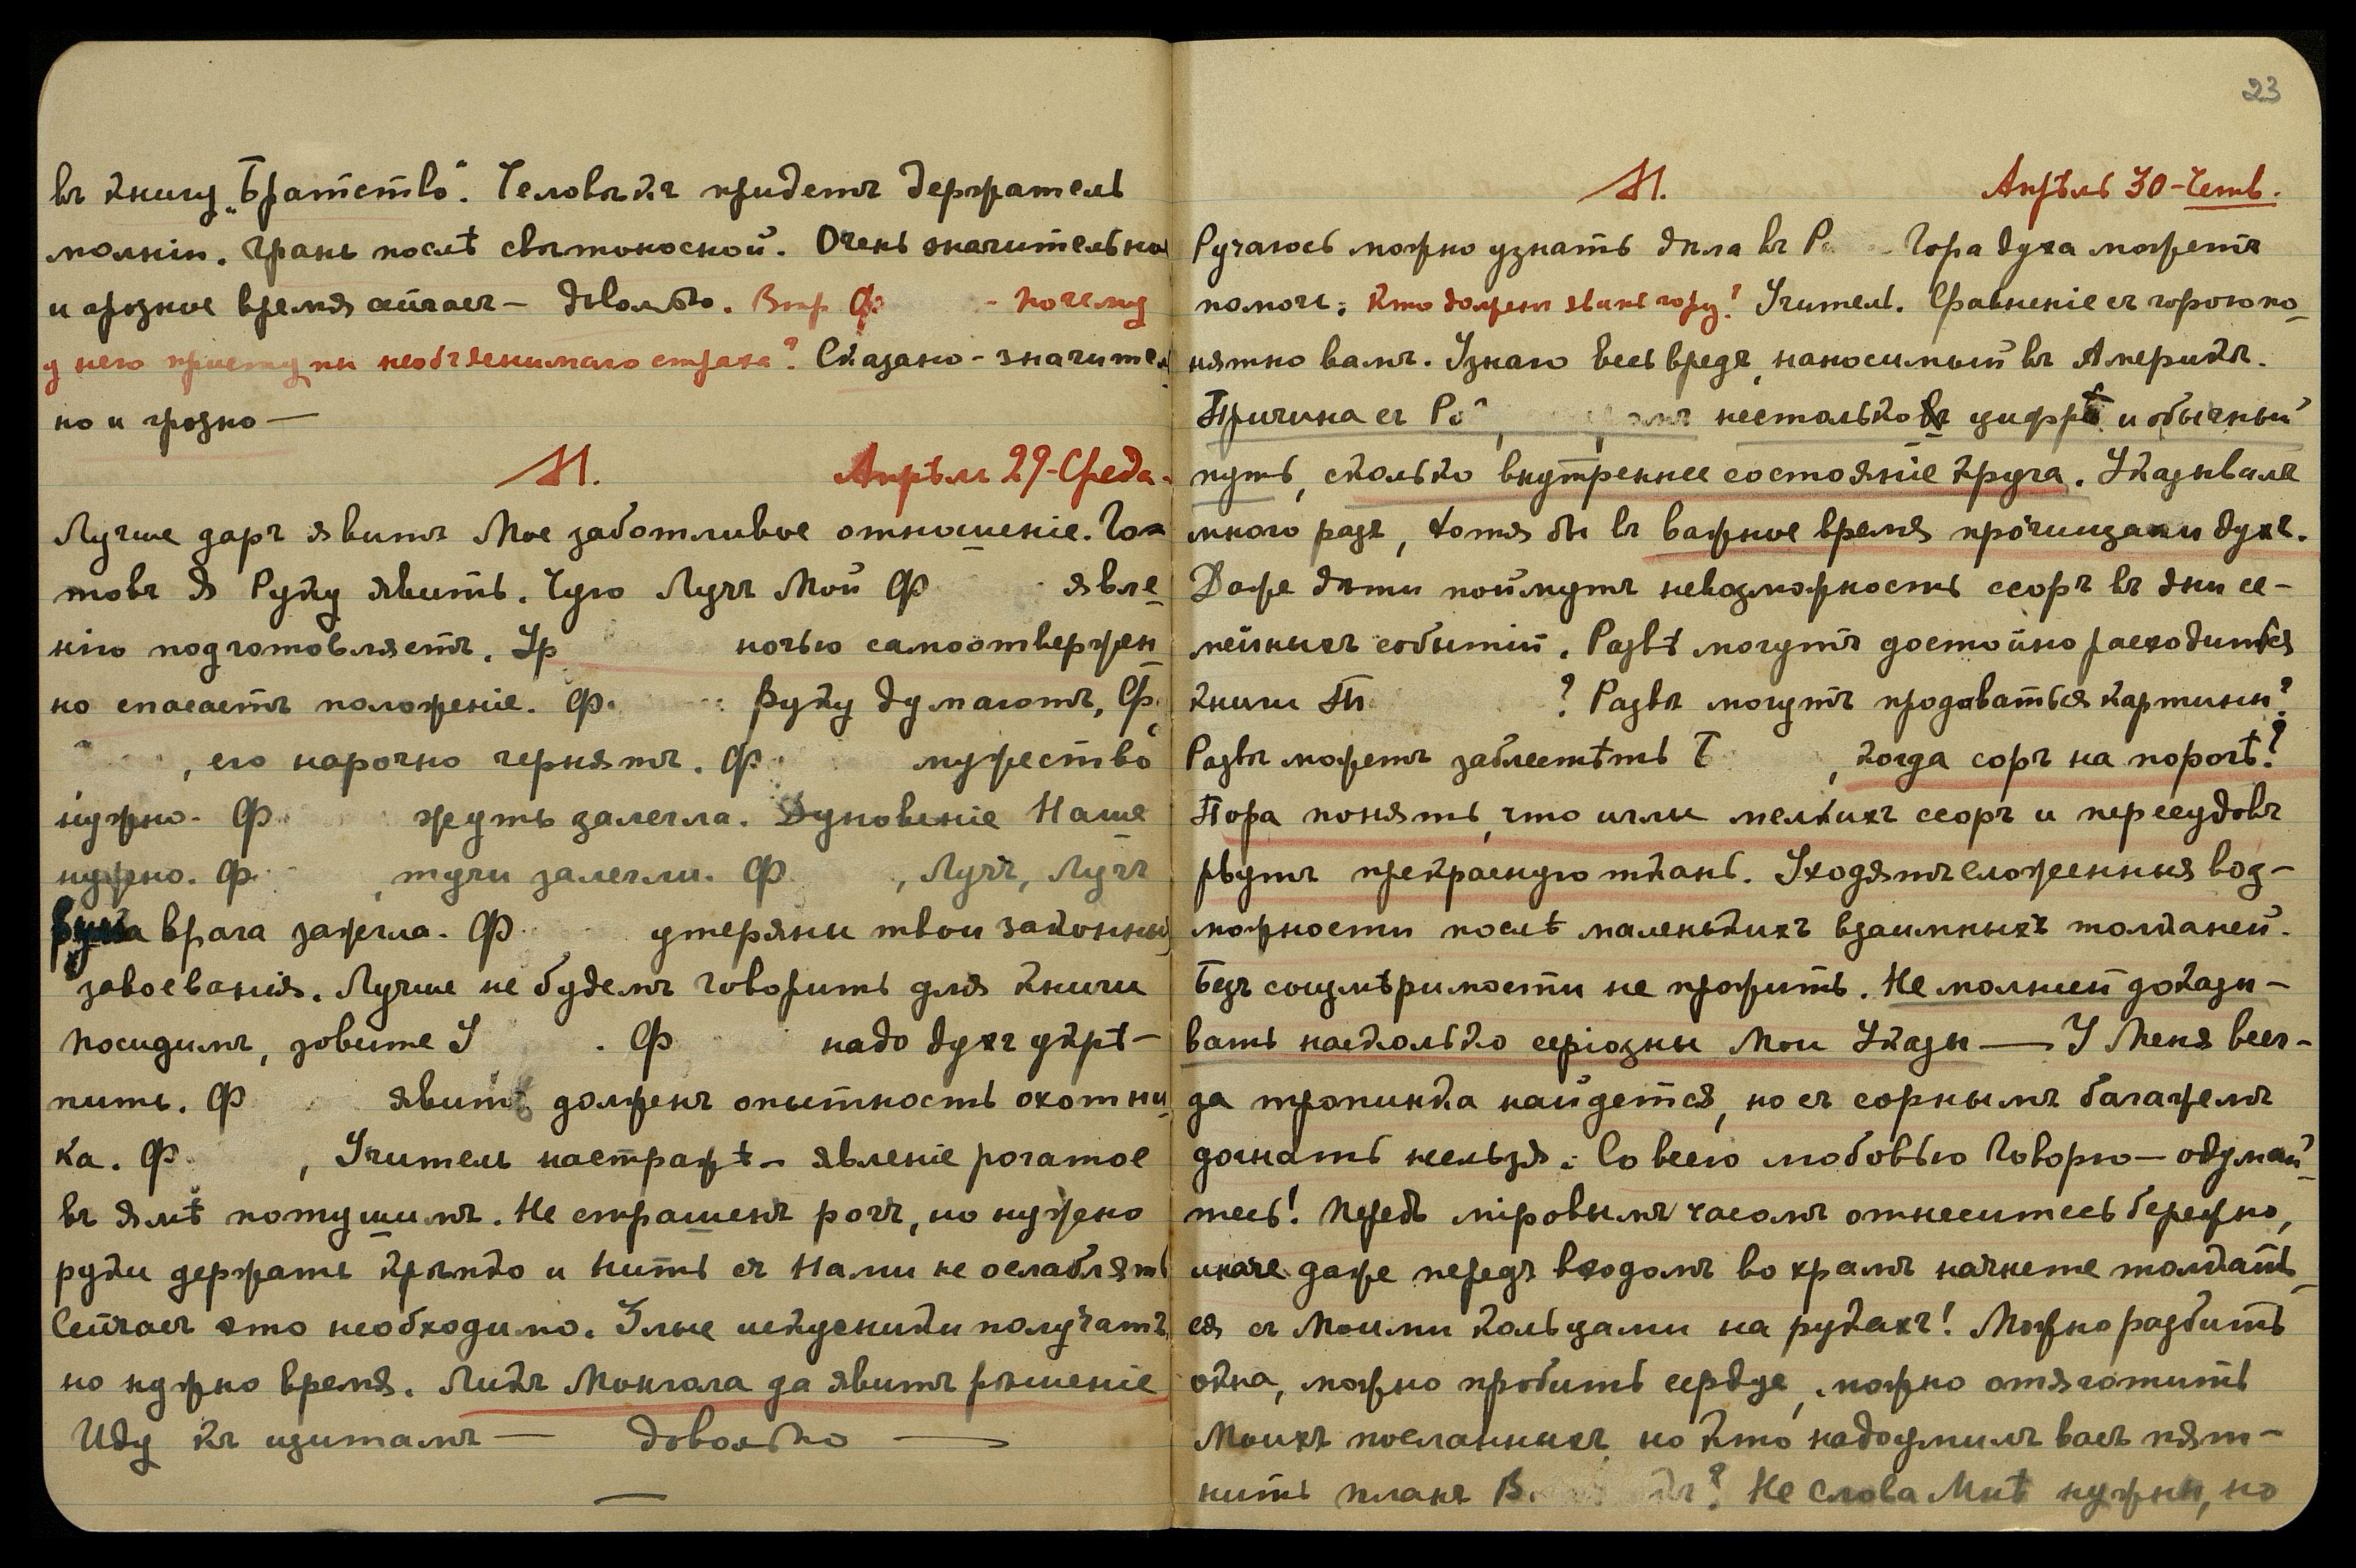 въ книгу „Братство". Человѣкъ придетъ держатель
молніи. Грань послѣ свѣтоносной. Очень значительное
и грозное время сейчас – довольно. Впр Ф – почему
у него приступы необъяснимаго страха? Сказано – значитель
но и грозно —
М. Апрѣль 29 – Среда.
Лучше даръ явитъ Мое заботливое отношеніе. Го-
товъ Я Руку явить. Чую Лучъ Мой Ф явле
нію подготовляетъ. Ур ночью самоотвержен
но спасаетъ положеніе. Ф. Руку думаютъ, Ф.
, его нарочно чернятъ. Ф. мужество
нужно. Ф. жуть залегла. Дуновеніе Наше
нужно. Ф. , тучи залегли. Ф. , Лучъ, Лучъ
Рука врага зажгла. Ф. утеряны твои законныя
завоеванія. Лучше не будемъ говорить для книги
посидимъ, зовите У . Ф надо духъ укрѣ-
пить. Ф явить долженъ опытность охотни
ка. Ф. , Учитель настражѣ – явленіе рогатое
въ ямѣ потушимъ. Не страшенъ рогъ, но нужно
руки держать крѣпко и нить съ Нами не ослаблять
Сейчасъ это необходимо. Злые искусники получатъ,
но нужно время. Ликъ Монгола да явитъ рѣшеніе
Иду къ щитамъ — довольно —
23
М. Апрѣль 30 – Четв.
Ручаюсь можно узнать дѣла въ Р Гора духа можетъ
помочь. Кто долженъ явить гору? Учитель. Сравненіе съ горою по
нятно вамъ. Узнаю весь вредъ, наносимый въ Америкѣ.
Причина съ Ро нестолько въ цифрѣ и обычный
путь, сколько внутреннее состояніе круга. Указывалъ
много разъ, хотя бы въ важное время прочищали духъ.
Даже дѣти поймутъ невозможность ссоръ въ дни се-
мейныхъ событій. Развѣ могутъ достойно расходиться
книги П ? Развѣ могутъ продаваться картины?
Развѣ можетъ заблестѣть Б , когда соръ на порогѣ?
Пора понять, что иглы мелкихъ ссоръ и пересудовъ
рвутъ прекрасную ткань. Уходятъ сложенныя воз-
можности послѣ маленькихъ взаимныхъ толканій.
Безъ соизмѣримости не прожить. Не молніей доказы-
вать насколько серіозны Мои Указы — У Меня всег-
да тропинка найдется, но съ сорнымъ багажемъ
догнать нельзя. Со всею любовью говорю — одумай
тесь! Передъ міровымъ часомъ отнеситесь бережно,
иначе даже передъ входомъ во храмъ начнете толкать
ся съ Моими кольцами на рукахъ! Можно разбить
окна, можно пробить сердце, можно отяготить
Моихъ посланныхъ, но кто надоумилъ васъ пят-
нить планъ В ? Не слова Мнѣ нужны, но